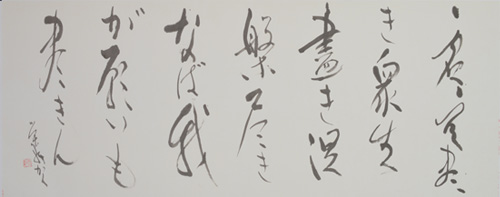 虚空尽
き衆生
盡き涅
槃尽き
なば我
が願いも
尽きん